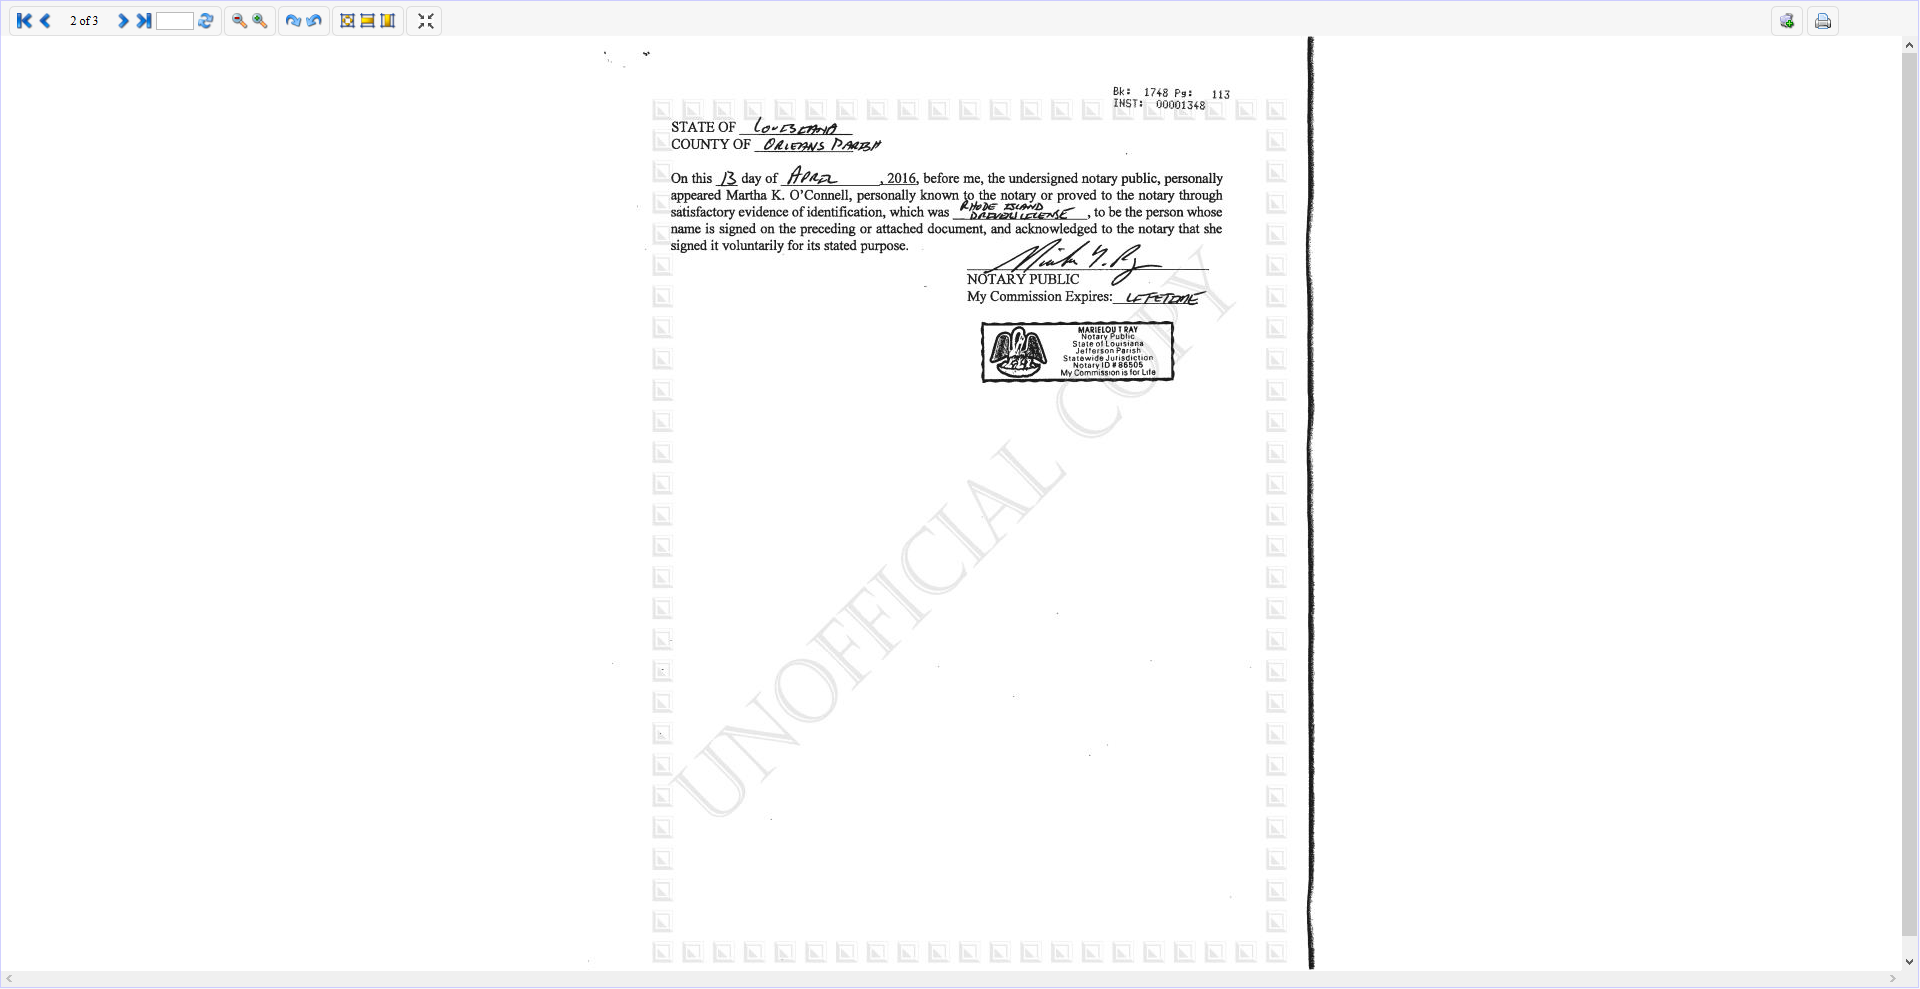 2 of 3
Bk: 1748 Pg: 113
INST: 00001348
STATE OF LOUISIANA
COUNTY OF ORLEANS PARISH
On this 13 day of APRIL, 2016, before me, the undersigned notary public, personally
appeared Martha K. O'Connell, personally known to the notary or proved to the notary through
satisfactory evidence of identification, which was RHODE ISLAND DRIVERS LICENSE, to be the person whose
name is signed on the preceding or attached document, and acknowledged to the notary that she
signed it voluntarily for its stated purpose.
NOTARY PUBLIC
My Commission Expires: LIFETIME
MARIELOU T RAY
Notary Public
State of Louisiana
Jefferson Parish
Statewide Jurisdiction
Notary ID # 86505
My Commission is for Life
UNOFFICIAL COPY